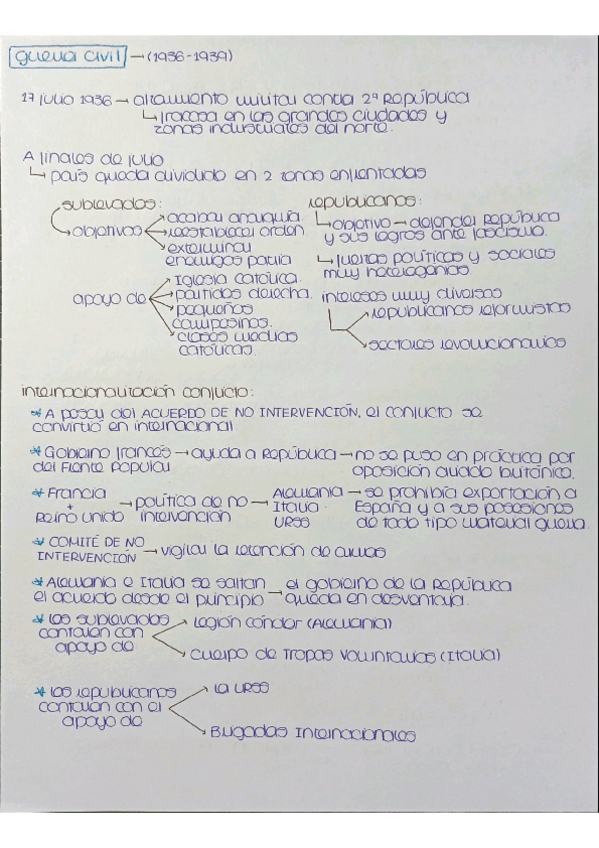 guerra civil → (1936-1939)
17 julio 1936 → alzamiento militar contra 2ª República
↳ fracasa en las grandes ciudades y
zonas industriales del norte.
A finales de julio
↳ país queda dividido en 2 zonas enfrentadas
sublevados:
objetivos
acabar anarquía
reestablecer orden
exterminar
enemigos patria
apoyo de
Iglesia católica.
partidos derecha.
pequeños
campesinos.
clases medias
católicas.
republicanos:
↳ objetivo → defender República
y sus logros ante fascismo.
↳ fuerzas políticas y sociales
muy heterogéneas
intereses muy diversos
republicanos reformistas
sectores revolucionarios
internacionalización conflicto:
* A pesar del ACUERDO DE NO INTERVENCIÓN, el conflicto se
convirtió en internacional
* Gobierno francés → ayuda a República → no se puso en práctica por
del Frente Popular oposición aliado británico.
* Francia + Reino Unido → política de no intervención → Alemania Italia URSS → se prohibía exportación a
España y a sus posesiones
de todo tipo material guerra.
* COMITÉ DE NO
INTERVENCIÓN → vigilar la retención de armas
* Alemania e Italia se saltan
el acuerdo desde el principio → el gobierno de la República
queda en desventaja.
* Los sublevados
contaron con
apoyo de
Legión cóndor (Alemania)
Cuerpo de Tropas Voluntarias (Italia)
* los republicanos
contaron con el
apoyo de
la URSS
Brigadas Internacionales